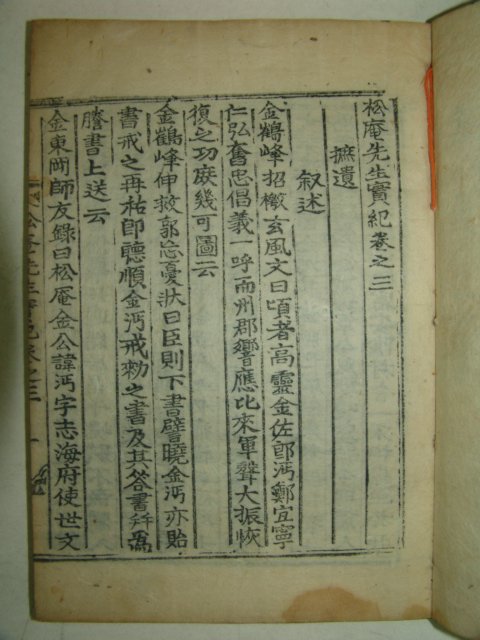 松庵先生實紀卷之三
摭遺
叙述
金鶴峰招檄玄風文曰頃者高靈金佐郎沔鄭宜寧
仁弘奮忠倡義一呼而州郡響應比來軍聲大振恢
復之功庶幾可圖云
金鶴峰伸救郭忘憂狀曰臣則下書譬曉金沔亦貽
書戒之再祐卽聽順金沔戒勑之書及其答書幷爲
謄書上送云
金東岡師友錄曰松庵金公諱沔字志海府使世文
松庵先生實紀卷之三 一